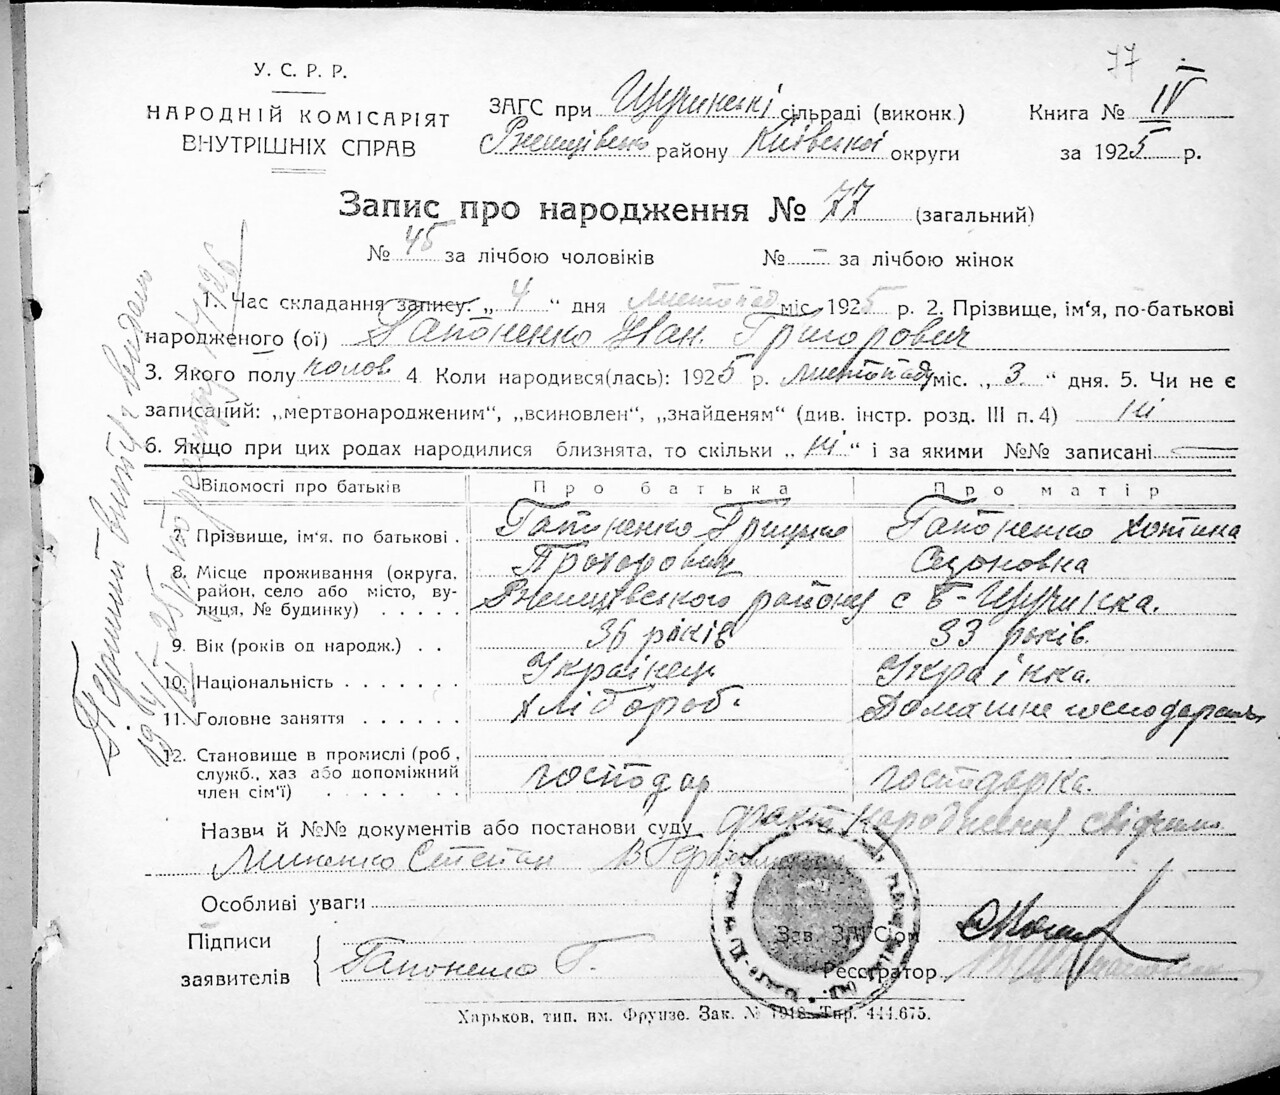 77
У. С. Р. Р.
НАРОДНІЙ КОМІСАРІЯТ
ВНУТРІШНІХ СПРАВ
ЗАГС при Щучинські сільраді (виконк.)
Ржищівсько району Київської округи
Книга № IV
за 1925 р.
Запис про народження № 77 (загальний)
№ 45 за лічбою чоловіків № – за лічбою жінок
1. Час складання запису: „ 4 “ дня листопад міс. 1925 р. 2. Прізвище, ім‘я, по-батькові
народженого (ої) Гапоненко Іван Григорович
3. Якого полу чолов. 4. Коли народився(лась): 1925 р. листопаду міс. „ 3 “ дня. 5. Чи не є
записаний: „мертвонародженим“, „всиновлен“, „знайденям“ (див. інстр. розд. III п. 4) ні
6. Якщо при цих родах народилися близнята, то скільки „ ні “ і за якими №№ записані
Відомості про батьків Про батька Про матір
7. Прізвище, ім‘я. по батькові . Гапоненко Грицько Прохорович Гапоненко Хотина
8. Місце проживання (округа, район, село або місто, вулиця, № будинку) Ржищівського району с Б-Щучинка.
9. Вік (років од народж.) . . 36 років 33 років.
10. Національність . . . . . . . Українець Українка.
11. Головне заняття . . . . . . Хлібороб. Домашнє
12. Становище в промислі (роб., служб., хаз або допоміжний член сім‘ї) господар господарка.
Назви й №№ документів або постанови суду факт народження
Степан
Особливі уваги
Підписи
заявителів Гапоненко Г.
Зав. ЗАГС‘ом
Реєстратор
Харьков, тип. им. Фрунзе. Зак. № 7918 Тир. 444.675.